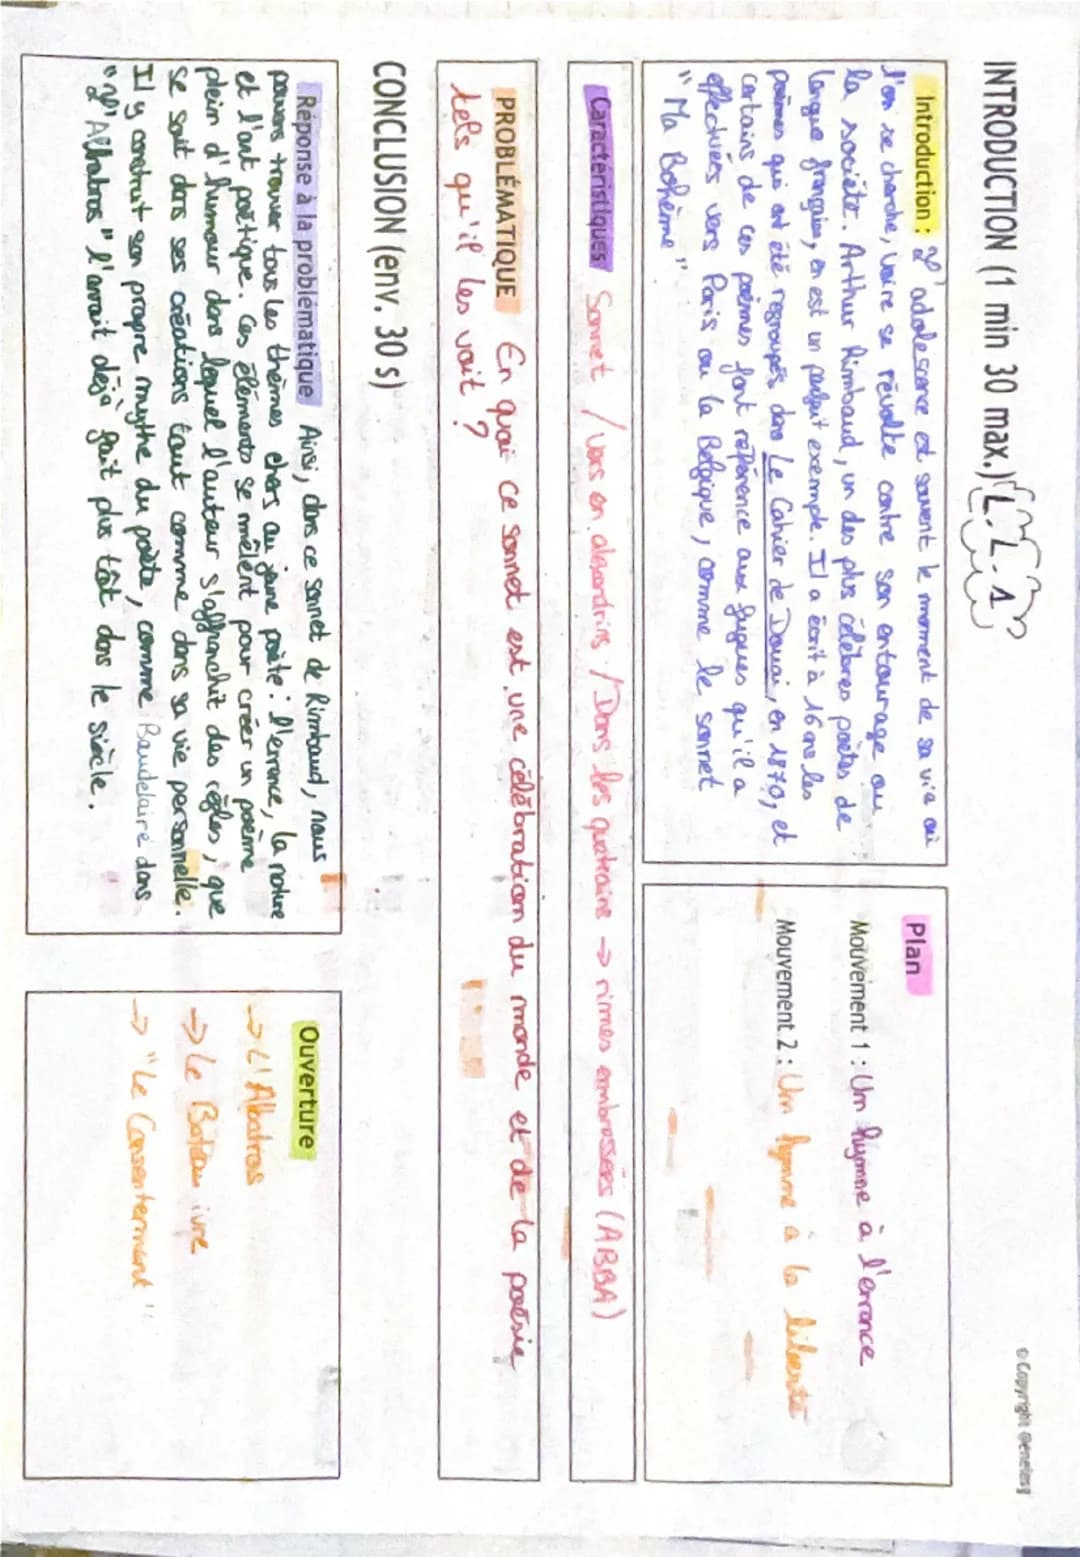 INTRODUCTION (1 min 30 max.) L.L.1
© Copyright
Introduction : L'adolescence est souvent le moment de sa vie où
l'on se cherche, voire se révolte contre son entourage ou
la société. Arthur Rimbaud, un des plus célèbres poètes de
langue française, en est un parfait exemple. Il a écrit à 16 ans les
poèmes qui ont été regroupés dans Le Cahier de Douai, en 1870, et
certains de ces poèmes font référence aux fugues qu'il a
effectuées vers Paris ou la Belgique, comme le sonnet
"Ma Bohème".
Plan
Mouvement 1 : Un hymne à l'errance
Mouvement 2 : Un hymne à la liberté
Caractéristiques Sonnet / vers en alexandrins / Dans les quatrains → rimes embrassées (ABBA)
PROBLÉMATIQUE En quoi ce sonnet est une célébration du monde et de la poésie
tels qu'il les voit ?
CONCLUSION (env. 30 s)
Réponse à la problématique Ainsi, dans ce sonnet de Rimbaud, nous
pouvons trouver tous les thèmes chers au jeune poète : l'errance, la nature
et l'art poétique. Ces éléments se mêlent pour créer un poème
plein d'humour dans lequel l'auteur s'affranchit des règles, que
se soit dans ses créations tout comme dans sa vie personnelle.
Il y construit son propre mythe du poète, comme Baudelaire dans
"L'Albatros" l'avait déjà fait plus tôt dans le siècle.
Ouverture
→ L'Albatros
→ Le Bateau ivre
→ "Le Consentement"